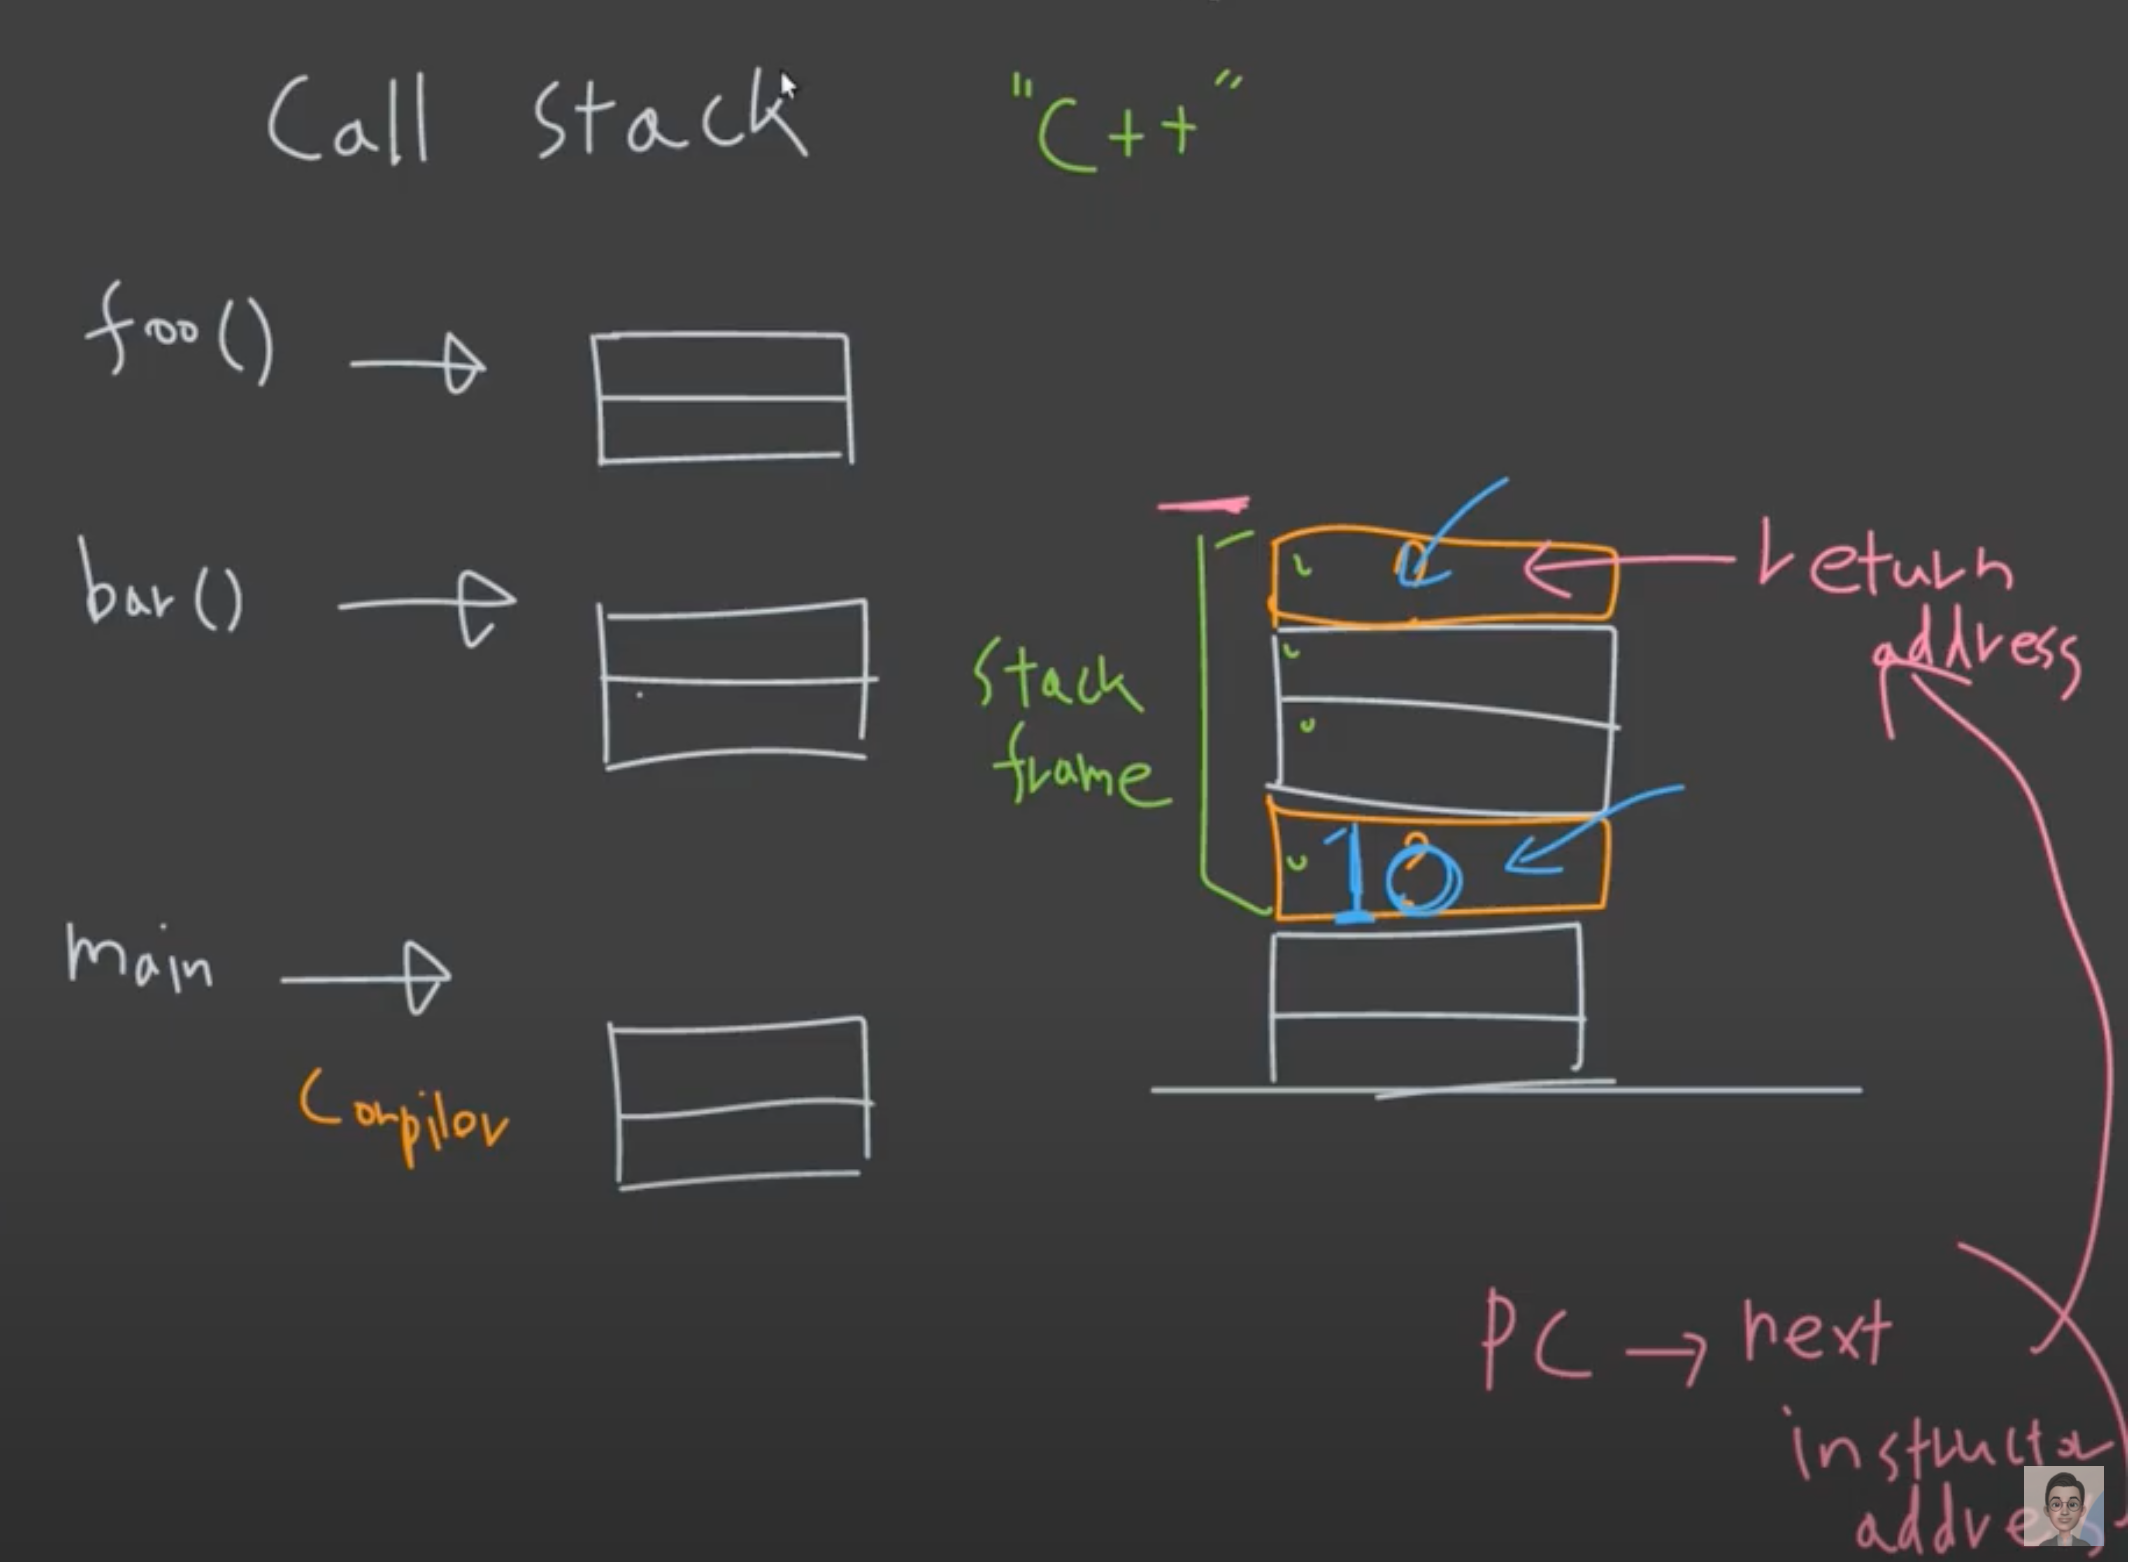 Call stack "C++"
foo()
bar()
main
Compiler
stack
frame
10
return
address
PC → next
instructor
address